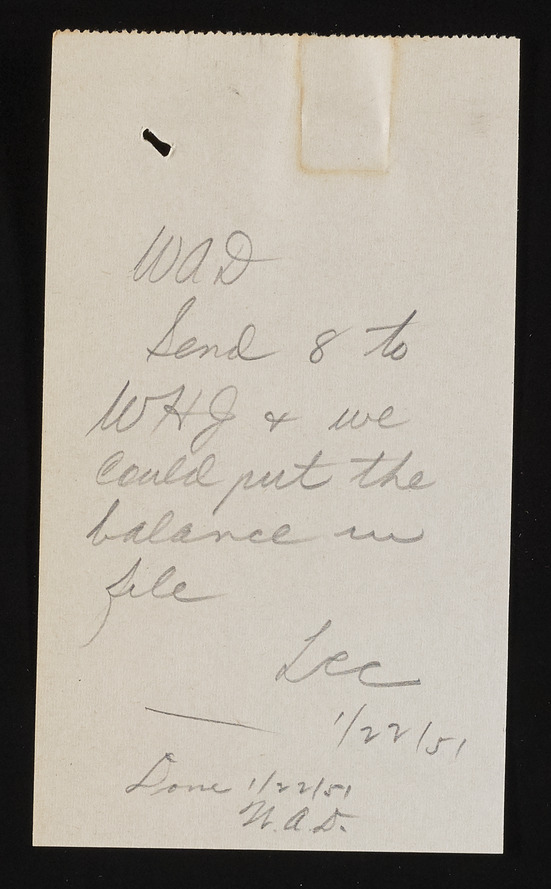 WAD
Send 8 to
WHJ & we
could put the
balance in
file
Lee
1/22/51
Done 1/22/51
W.A.D.